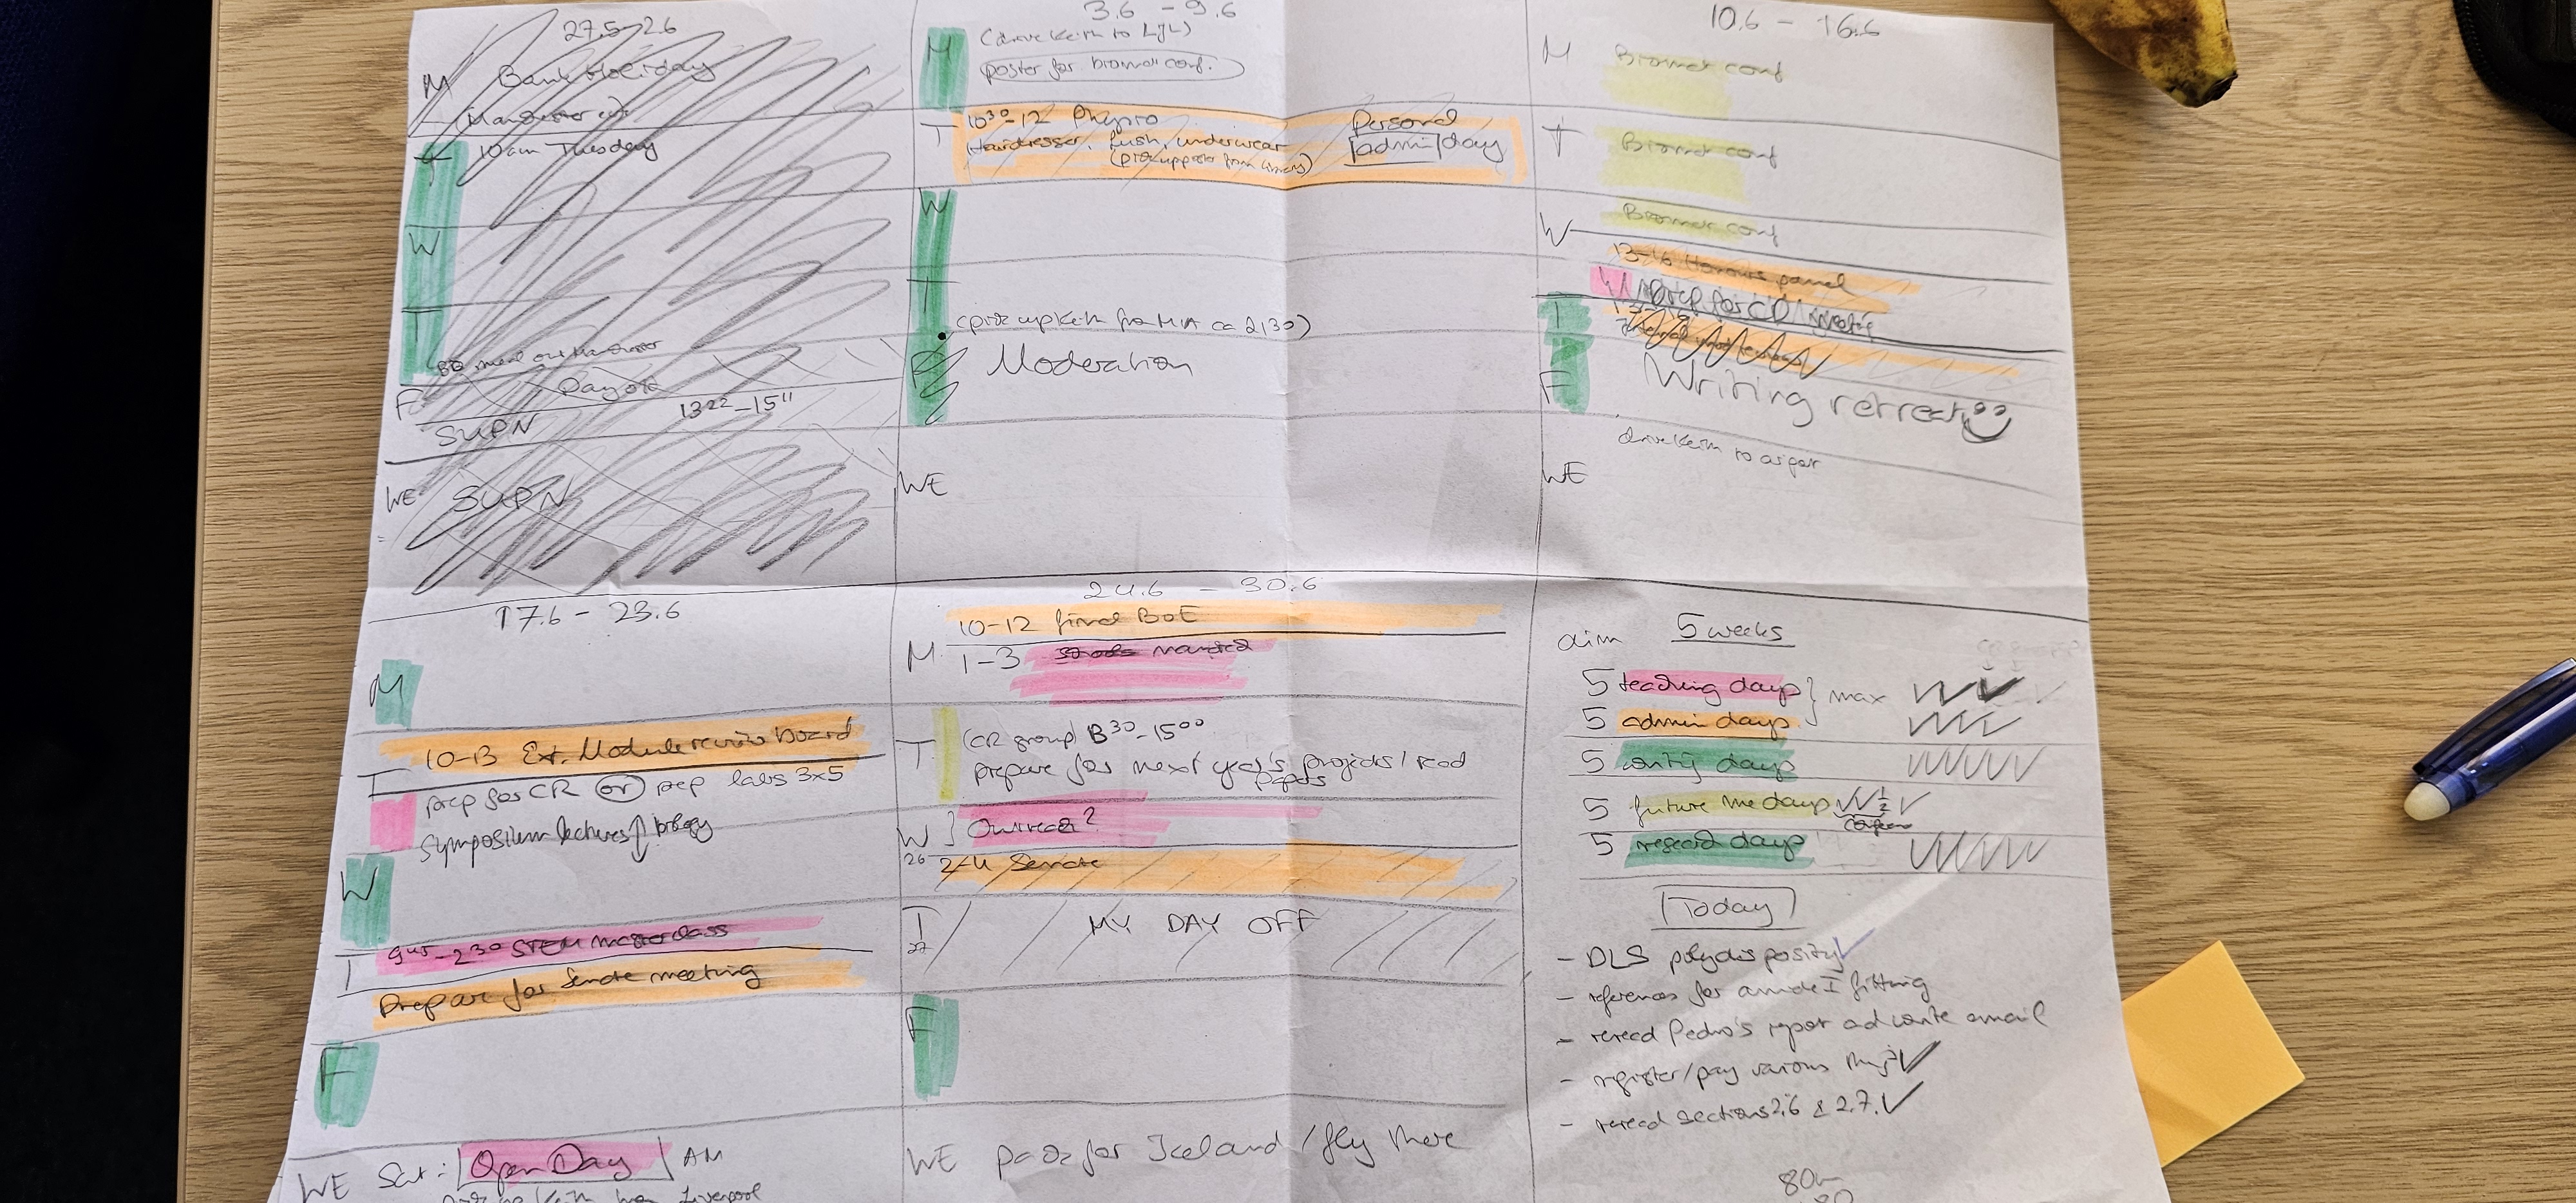 27.5-2.6
M Bank Holiday
10am Tuesday
T
W
T
Day off
F
SUPN 13²²-15¹¹
WE SUPN
3.6 - 9.6
M (drive Keith to LJL)
poster for biomat conf.
T 10³⁰-12 Physio
Hairdresser, underwear
(pick up poster from library)
Personal
admin day
W
T
(pick up Keith from MIA ca 2130)
F Moderation
WE
10.6 - 16.6
M Biomat conf
T Biomat conf
W Biomat conf
13-16 Honours panel
prep for CD
T
F
Writing retreat
drive Keith to airport
WE
17.6 - 23.6
M
10-13 Ext. Module review board
T
prep for CR or prep labs 3x5
Symposium lectures biology
W
9⁴⁵-2³⁰ STEM masterclass
T
Prepare for Senate meeting
F
WE Sat: Open Day AM
Keith from Liverpool
24.6 - 30.6
10-12 final BoE
M 1-3
T (CR group) 13³⁰-15⁰⁰
prepare for next year's projects / read
papers
W Outreach?
26 2-4 Senate
T MY DAY OFF
27
F
WE pack for Iceland / fly there
aim 5 weeks
5 teaching days } max
5 admin days
5 writing days
5 future me days ½
5 research days
Today
- DLS polydispersity
- references for amide I fitting
- reread Pedro's report and write email
- register/pay various things
- reread sections 2.6 & 2.7.